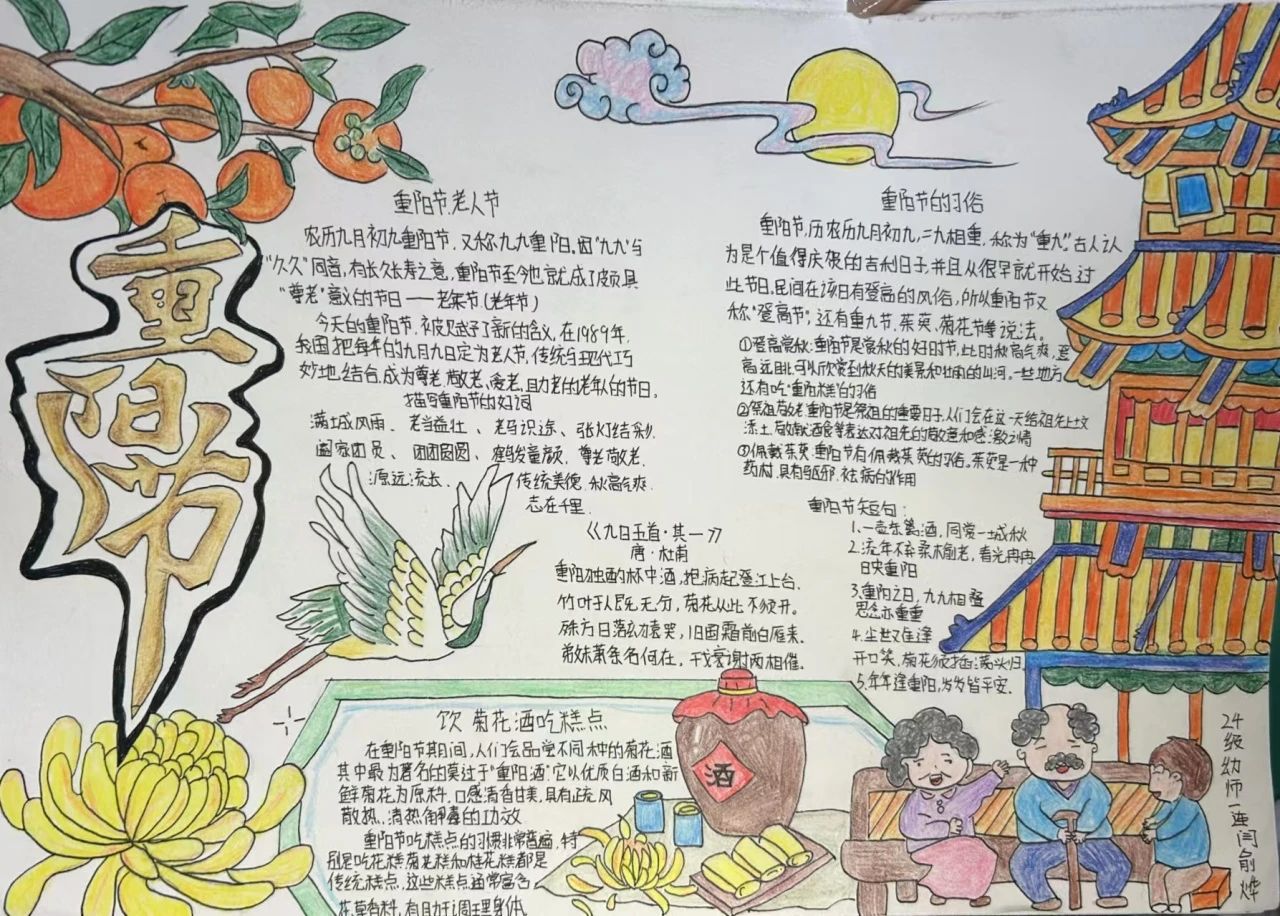 重阳节
重阳节,老人节
农历九月初九重阳节,又称九九重阳。因"九九"与
"久久"同音,有长久长寿之意,重阳节至今也就成了颇具
"尊老"意义的节日——老年节(老年节)
今天的重阳节,被赋予了新的含义,在1989年,
我国把每年的九月九日定为老人节,传统与现代巧
妙地结合,成为尊老、敬老、爱老、助老的老年人的节日。
描写重阳节的好词
满城风雨、老当益壮、老马识途、张灯结彩、
阖家团员、团团圆圆、鹤发童颜、尊老敬老、
源远流长、传统美德、秋高气爽、
志在千里
《九日五首·其一》
唐·杜甫
重阳独酌杯中酒,抱病起登江上台。
竹叶于人既无分,菊花从此不须开。
殊方日落玄猿哭,旧国霜前白雁来。
弟妹萧条各何在,干戈衰谢两相催。
重阳节的习俗
重阳节,历农历九月初九,二九相重,称为"重九"。古人认
为是个值得庆祝的吉利日子,并且从很早就开始过
此节日。民间在该日有登高的风俗,所以重阳节又
称"登高节"。还有重九节、茱萸、菊花节等说法。
①登高赏秋:重阳节是赏秋的好时节,此时秋高气爽,登
高远眺,可以欣赏到秋天的美景和壮丽的山河。一些地方
还有吃"重阳糕"的习俗
②祭祖敬老:重阳节是祭祖的重要日子,人们会在这一天给祖先上坟
添土,敬献酒食等表达对祖先的敬意和感激之情
③佩戴茱萸:重阳节有佩戴茱萸的习俗。茱萸是一种
药材,具有驱邪、祛病的作用
重阳节短句:
1、一壶东篱酒,同赏一城秋
2、流年不负柔木偷老,春光冉冉
日央重阳
3、重阳之日,九九相叠
思念亦重重
4、尘世难逢
开口笑,菊花须插满头归。
5、年年逢重阳,岁岁皆平安。
饮菊花酒吃糕点
在重阳节期间,人们会品尝不同种的菊花酒
其中最为著名的莫过于"重阳酒"。它以优质白酒和新
鲜菊花为原料,口感清香甘美,具有疏风
散热、清热解毒的功效
重阳节吃糕点的习惯非常普遍,特
别是吃花糕菊花糕和桂花糕都是
传统糕点,这些糕点通常富含
花草香料,有助于调理身体
酒
24级幼师一班闫俞烨